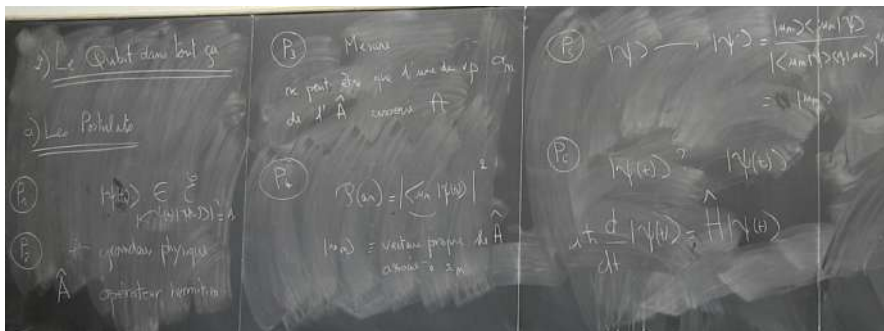 2) Le Qubit dans tout ça
a) Les Postulats
P1 |ψ(t)> ∈ ℰ
|<ψ(t)|ψ(t)>|² = 1
P2 grandeur physique
Â opérateur hermitien
P3 Mesure
ne peut être que d'une des vp aₙ
de l' Â associé A
P4 𝒫(aₙ) = |<uₙ|ψ(t)>|²
|uₙ> ≡ vecteur propre de Â
associé à aₙ
P5 |ψ> → |ψ'> = |uₙ><uₙ|ψ> / |<uₙ|ψ><ψ|uₙ>|
= |uₙ>
P6 |ψ(t)> ? |ψ(t)>
iħ d/dt |ψ(t)> = Ĥ |ψ(t)>